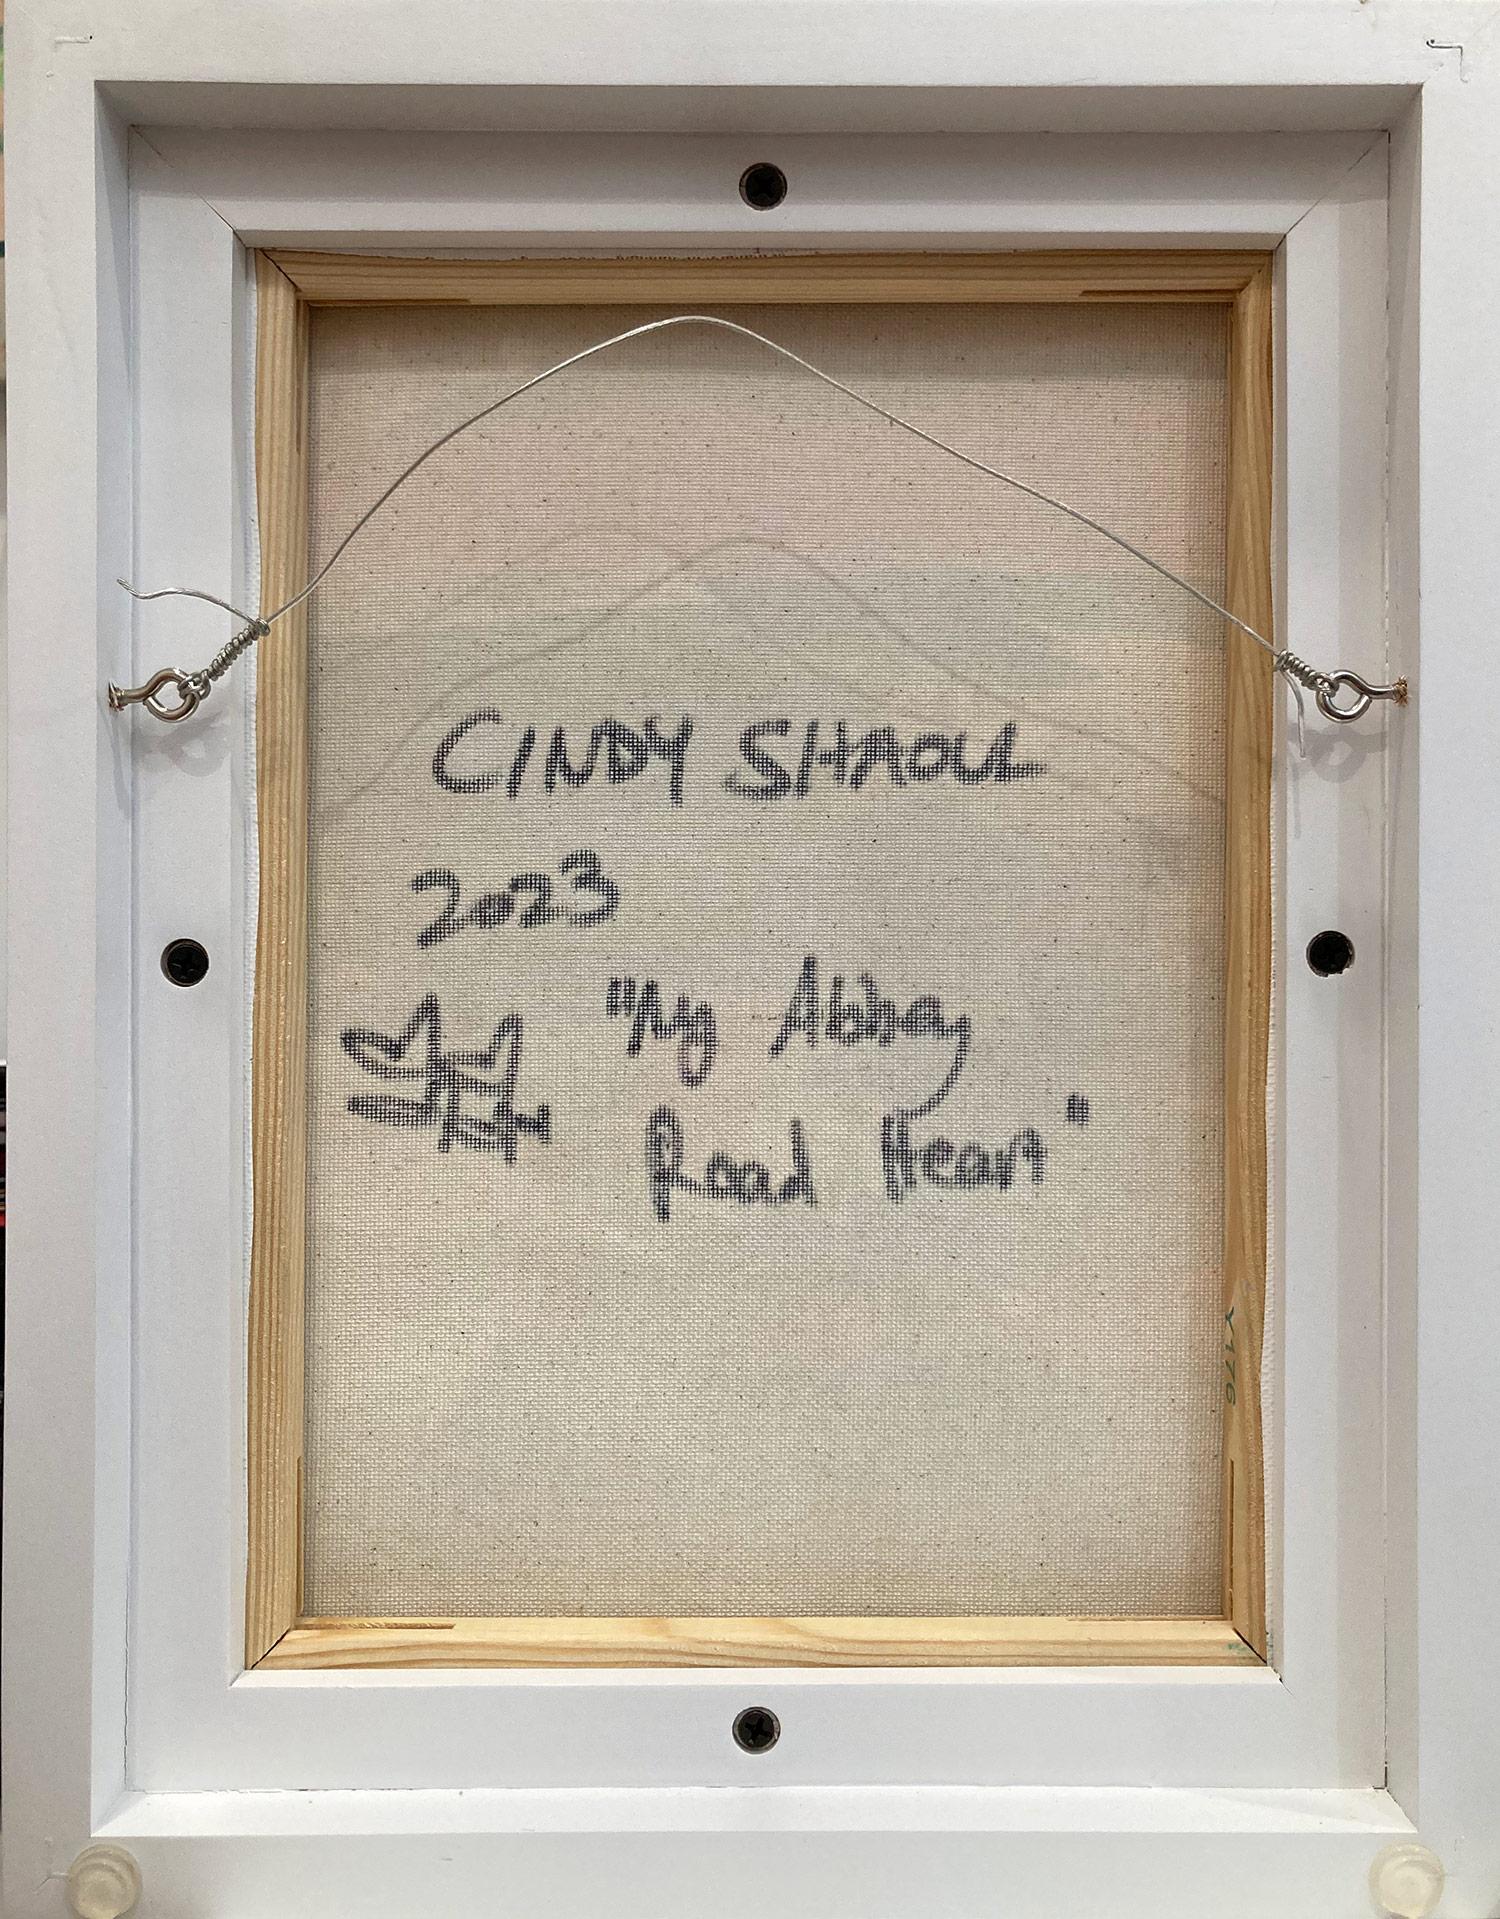 CINDY SHAOUL
2023
"My Abbey
Road Heart"
Y176